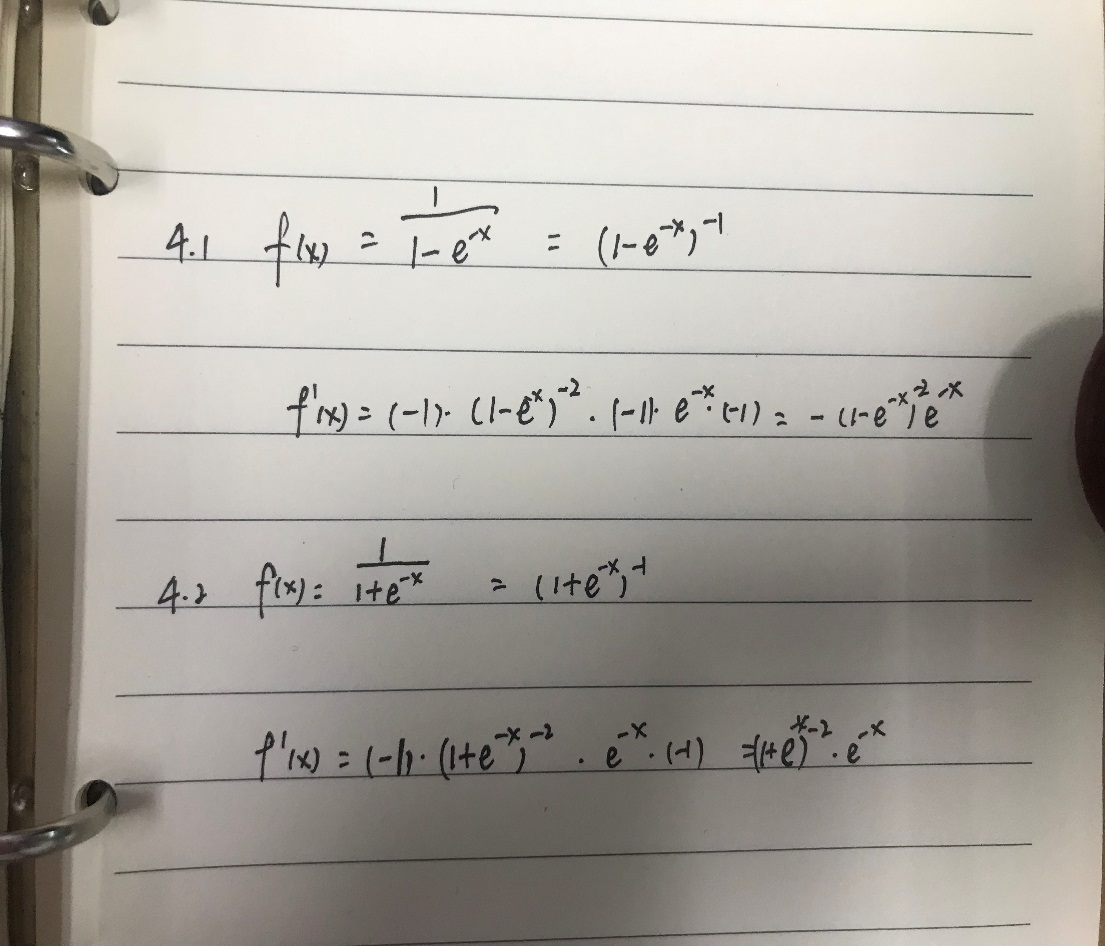 4.1 f(x) = 1/(1-e^-x) = (1-e^-x)^-1
f'(x) = (-1)· (1-e^x)^-2 · (-1)· e^-x · (-1) = - (1-e^-x)^-2 e^-x
4.2 f(x) = 1/(1+e^-x) = (1+e^-x)^-1
f'(x) = (-1)· (1+e^-x)^-2 · e^-x · (-1) = (1+e^-x)^-2 · e^-x